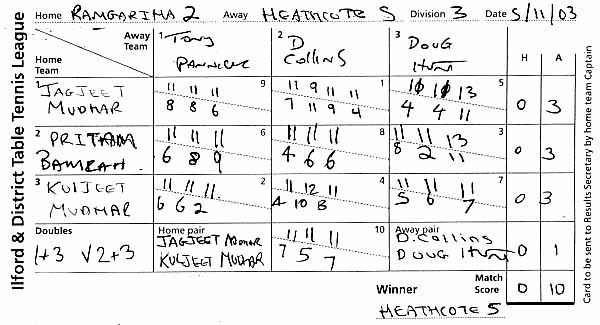 Ilford & District Table Tennis League
Home RAMGARIHA 2 Away HEATHCOTE 5 Division 3 Date 5/11/03
Away Team
Home Team
1 Tony
2 D Collins
3 DOUG
H A
1 JAGJEET MUDHAR
9
11 11 11
8 8 6
1
11 9 11 11
7 11 9 4
5
11 13
4 4 11
0 3
2 PRITAM
6
11 11 11
6 8 9
8
11 11 11
4 6 6
3
11 11 13
8 2 11
0 3
3 KULJEET MUDHAR
2
11 11 11
6 6 2
4
11 12 11
4 10 8
7
11 11 11
5 6 7
0 3
Doubles
1+3 √2+3
Home pair
JAGJEET MUDHAR
KULJEET MUDHAR
10
11 11 11
7 5 7
Away pair
D. Collins
DOUG
0 1
Winner
Match Score
0 10
HEATHCOTE 5
Card to be sent to Results Secretary by home team Captain